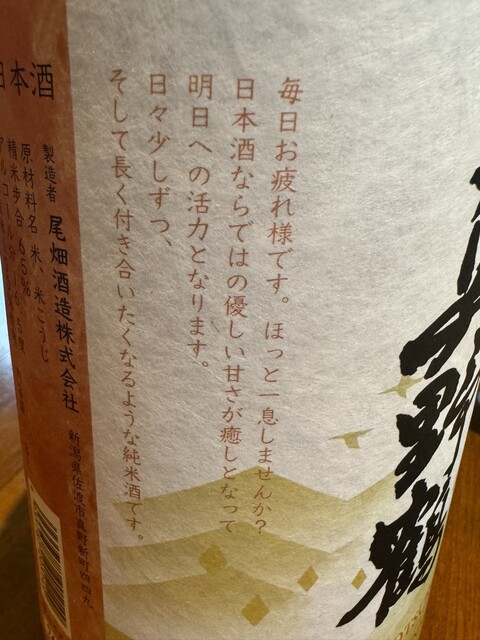 真野鶴
毎日お疲れ様です。ほっと一息しませんか？
日本酒ならではの優しい甘さが癒しとなって
明日への活力となります。
日々少しずつ、
そして長く付き合いたくなるような純米酒です。
日本酒
製造者 尾畑酒造株式会社
新潟県佐渡市真野新町四四九
原材料名 米、米こうじ
精米歩合 65%